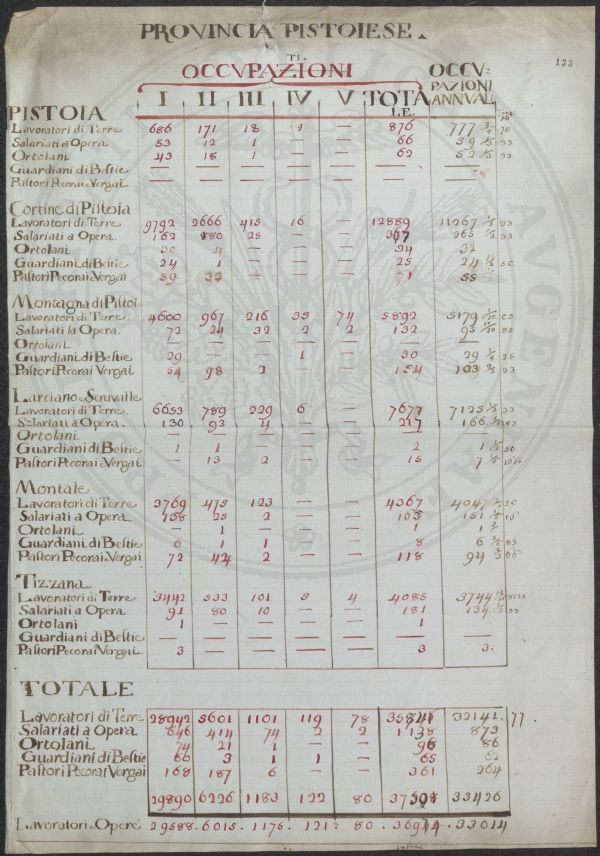 PROVINCIA PISTOIESE.
133
OCCVPAZIONI
TI
OCCV-
PAZIONI
ANNVAL
I II III IV V TOTA
LE.
PISTOIA
Lavoratori di Terre 686 171 18 1 — 876 777
Salariati a Opera 53 12 1 — — 66 59
Ortolani 43 18 1 — — 62 52
Guardiani di Bestie — — — — — —
Pastori Pecorai e Vergai — — — — — —
Cortine di Pistoia
Lavoratori di Terre 9792 2666 415 16 — 12889 11267
Salariati a Opera. 162 180 25 — — 265
Ortolani 30 4 — — — 34 32
Guardiani di Bestie 24 1 — — — 25 24
Pastori Pecorai e Vergai 39 — — — 55
Montagna di Pistoi
Lavoratori di Terre. 4600 967 216 35 74 5892 5179
Salariati a Opera. 72 24 32 2 2 132 95
Ortolani — — — — — —
Guardiani di Bestie 29 — — 1 — 30 29
Pastori Pecorai Vergai 54 98 2 — — 154 103
Larciano e Seravalle
Lavoratori di Terre 6653 789 229 6 — 7677 7125
Salariati a Opera. 130 93 — — 217 166
Ortolani — — — — — —
Guardiani di Bestie 1 1 — — — 2 1
Pastori Pecorai e Vergai — 13 2 — — 15 7
Montale
Lavoratori di Terre 3769 475 123 — — 4367 4047
Salariati a Opera 138 25 2 — — 151
Ortolani — 1 — — — 1
Guardiani di Bestie 6 1 1 — — 8 6
Pastori Pecorai e Vergai 72 44 2 — — 118 94
Tizzana
Lavoratori di Terre 3442 533 101 5 4 4085 3744
Salariati a Opera 91 80 10 — — 181 134
Ortolani 1 — — — — 1
Guardiani di Bestie — — — — — —
Pastori Pecorai Vergai 3 — — — — 3 3.
TOTALE
Lavoratori di Terre 28942 5601 1101 119 78 32141. 77.
Salariati a Opera 646 414 74 2 2 1138 873
Ortolani 74 21 1 — — 96 86
Guardiani di Bestie 60 3 1 1 — 65 62
Pastori Pecorai Vergai 168 187 6 — — 361 264
29890 6226 1183 122 80 33426
Lavoratori e Opere 29588. 6015. 1175. 121. 80. 36944. 33014